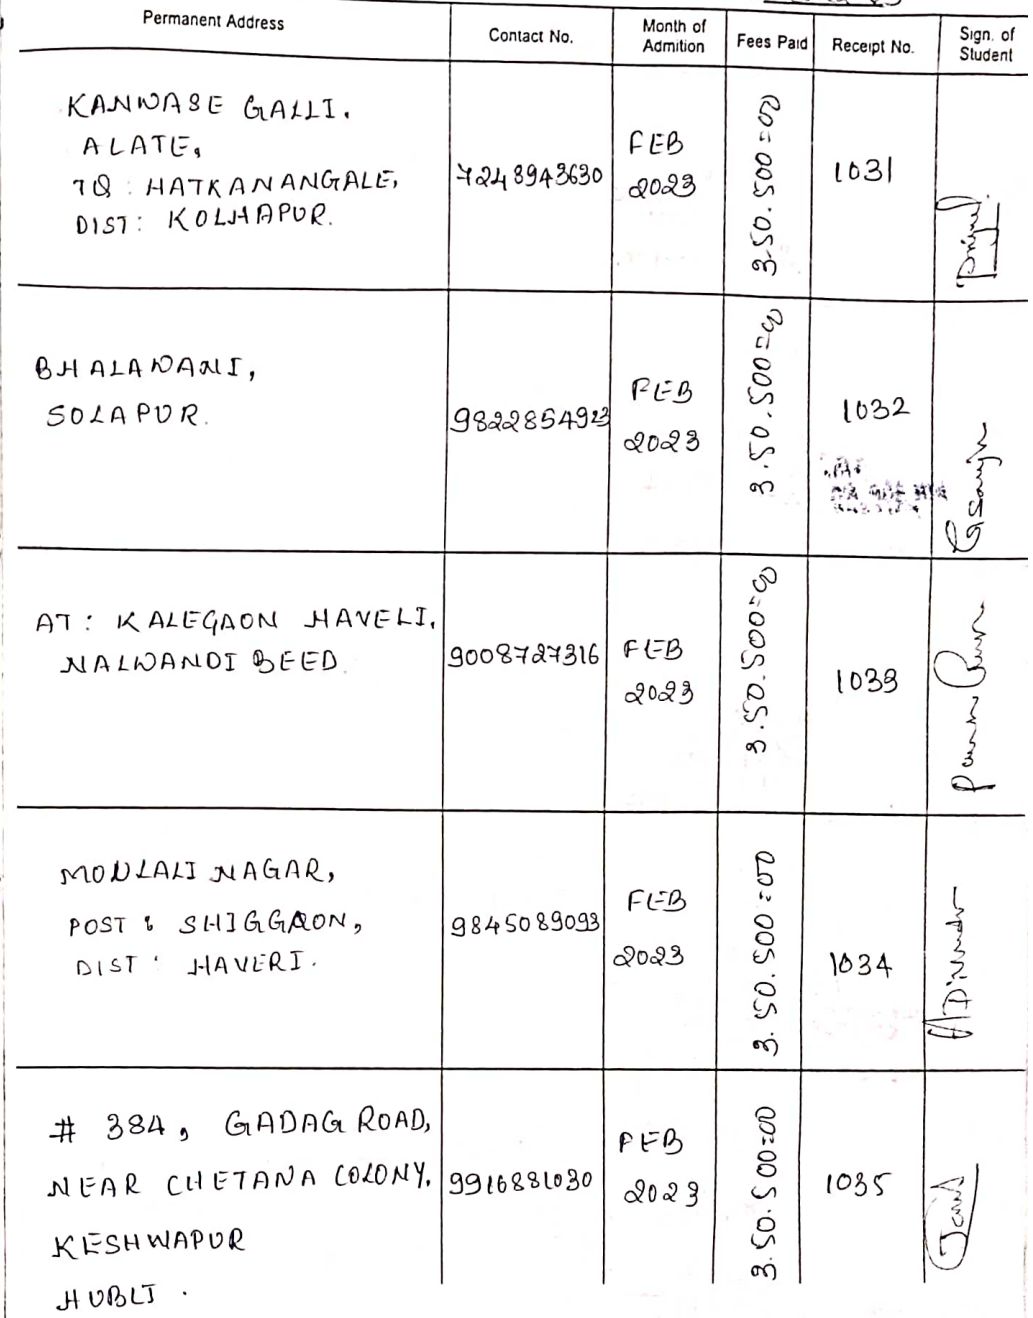 Permanent Address
Contact No.
Month of
Admition
Fees Paid
Receipt No.
Sign. of
Student
KANWASE GALLI.
ALATE,
TQ : HATKANANGALE,
DIST: KOLHAPUR.
7248943630
FEB
2023
3.50.500=00
1031
BHALAWANI,
SOLAPUR.
9822854923
FEB
2023
3.50.500=00
1032
AT : KALEGAON HAVELI,
NALWANDI BEED
9008727316
FEB
2023
3.50.500=00
1033
MOULALI NAGAR,
POST : SHIGGAON,
DIST : HAVERI.
9845089093
FEB
2023
3.50.500=00
1034
# 384, GADAG ROAD,
NEAR CHETANA COLONY.
KESHWAPUR
HUBLI .
9916881030
FEB
2023
3.50.500=00
1035